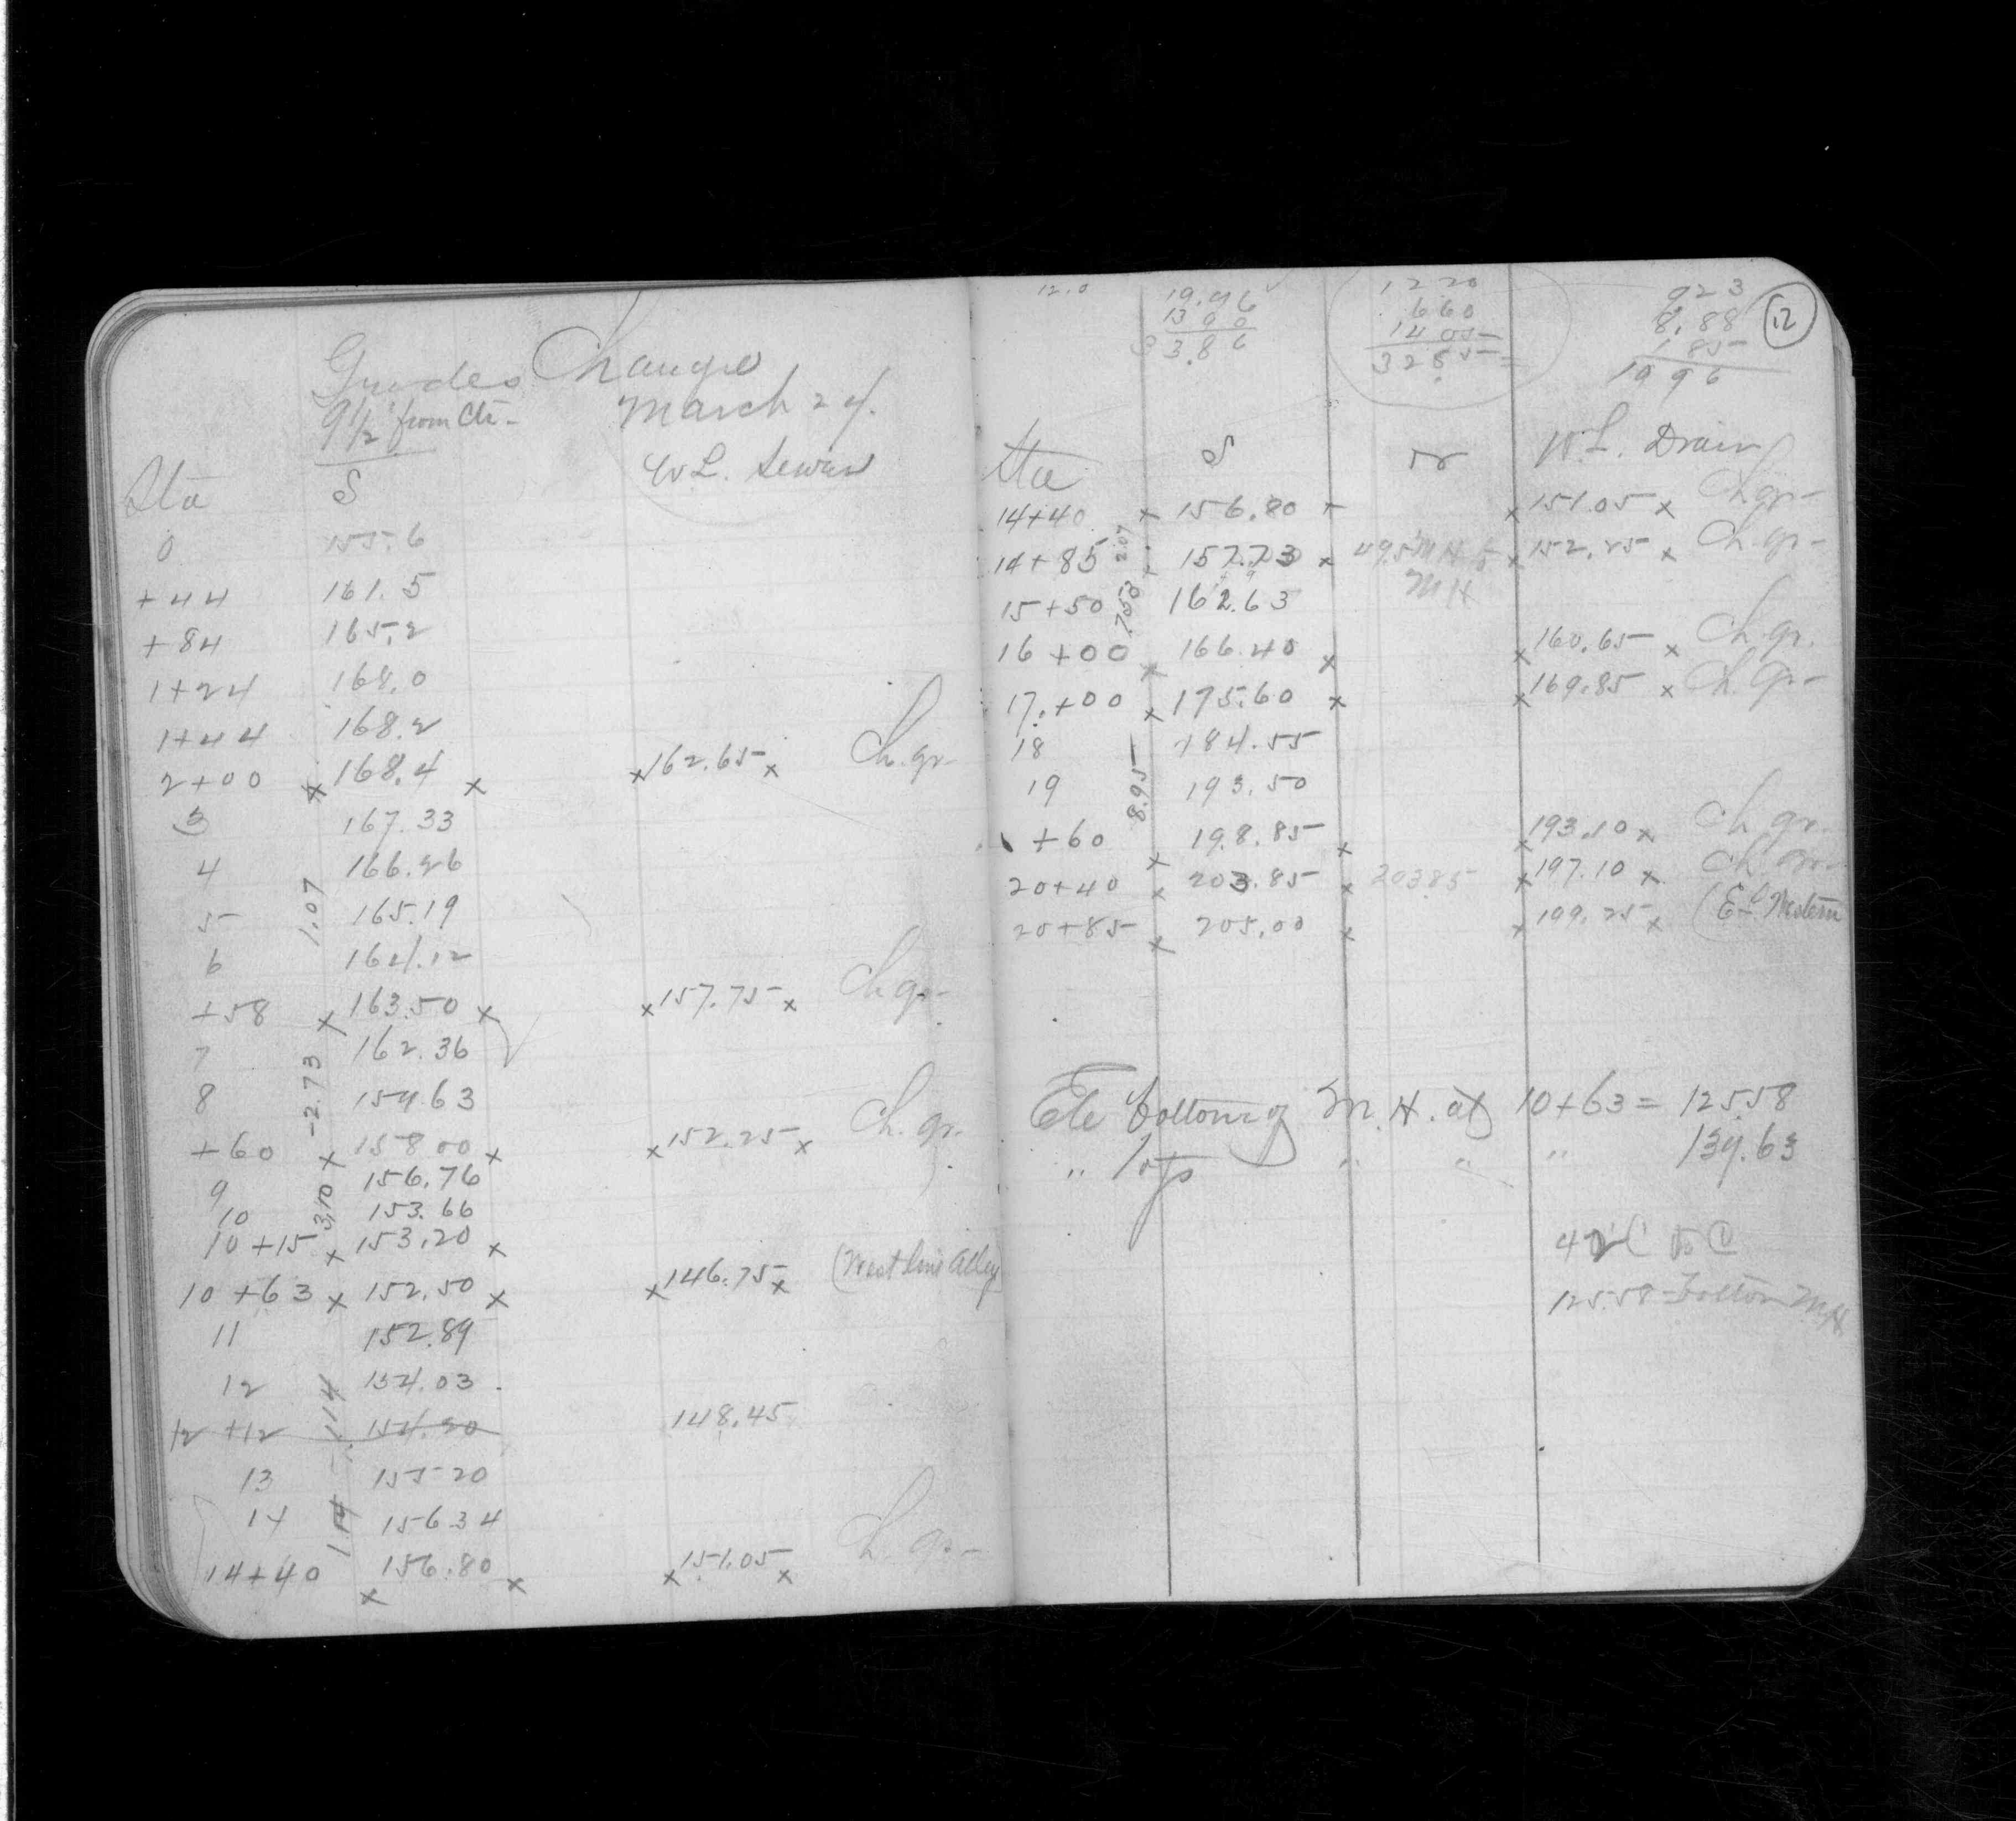 Grades Change
9½' from Ctr -
March 24.
Sta S W L. Sewer
0 155.6
+44 161.5
+84 165.2
1+24 168.0
1+44 168.2
2+00 x 168.4 x x 162.65 x Ch. gr-
3 167.33
4 166.26
1.07
5 165.19
6 164.12
+58 x 163.50 x x 157.75 x Ch gr-
7 162.36
-2.73
8 159.63
+60 x 158 00 x x 152.25 x Ch. gr.
9 156.76
3.10
10 153.66
10+15 x 153.20 x
10+63 x 152.50 x x 146.75 x (West line Alley
11 152.89
12 154.03
1.14
12+12 154.20 148.45
13 155 20
14 156 34
1.14
14+40 x 156.80 x x 151.05 x Ch. gr-
12
12.0
19.96
13 90
33.86
1220
660
1405
3285
923
8.88
1 85
1996
Sta S or W. L. Drain
14+40 x 156.80 x x 151.05 x Ch gr-
2.07
14+85 x 157.73 x x 152.25 x Ch. gr-
MH
15+50 162.63
7.53
16+00 x 166.40 x x 160.65 x Ch. gr.
17+00 x 175.60 x x 169.85 x Ch. gr-
18 184.55
8.95
19 193.50
+60 x 198.85 x x 193.10 x Ch gr-
20+40 x 203.85 x 203.85 x 197.10 x Ch gr-
20+85 x 205.00 x x 199.25 x (E L Western
Ele bottom of M. H. at 10+63 = 125.58
" Top " " " 139.63
42' C to C
125.58 Bottom MH